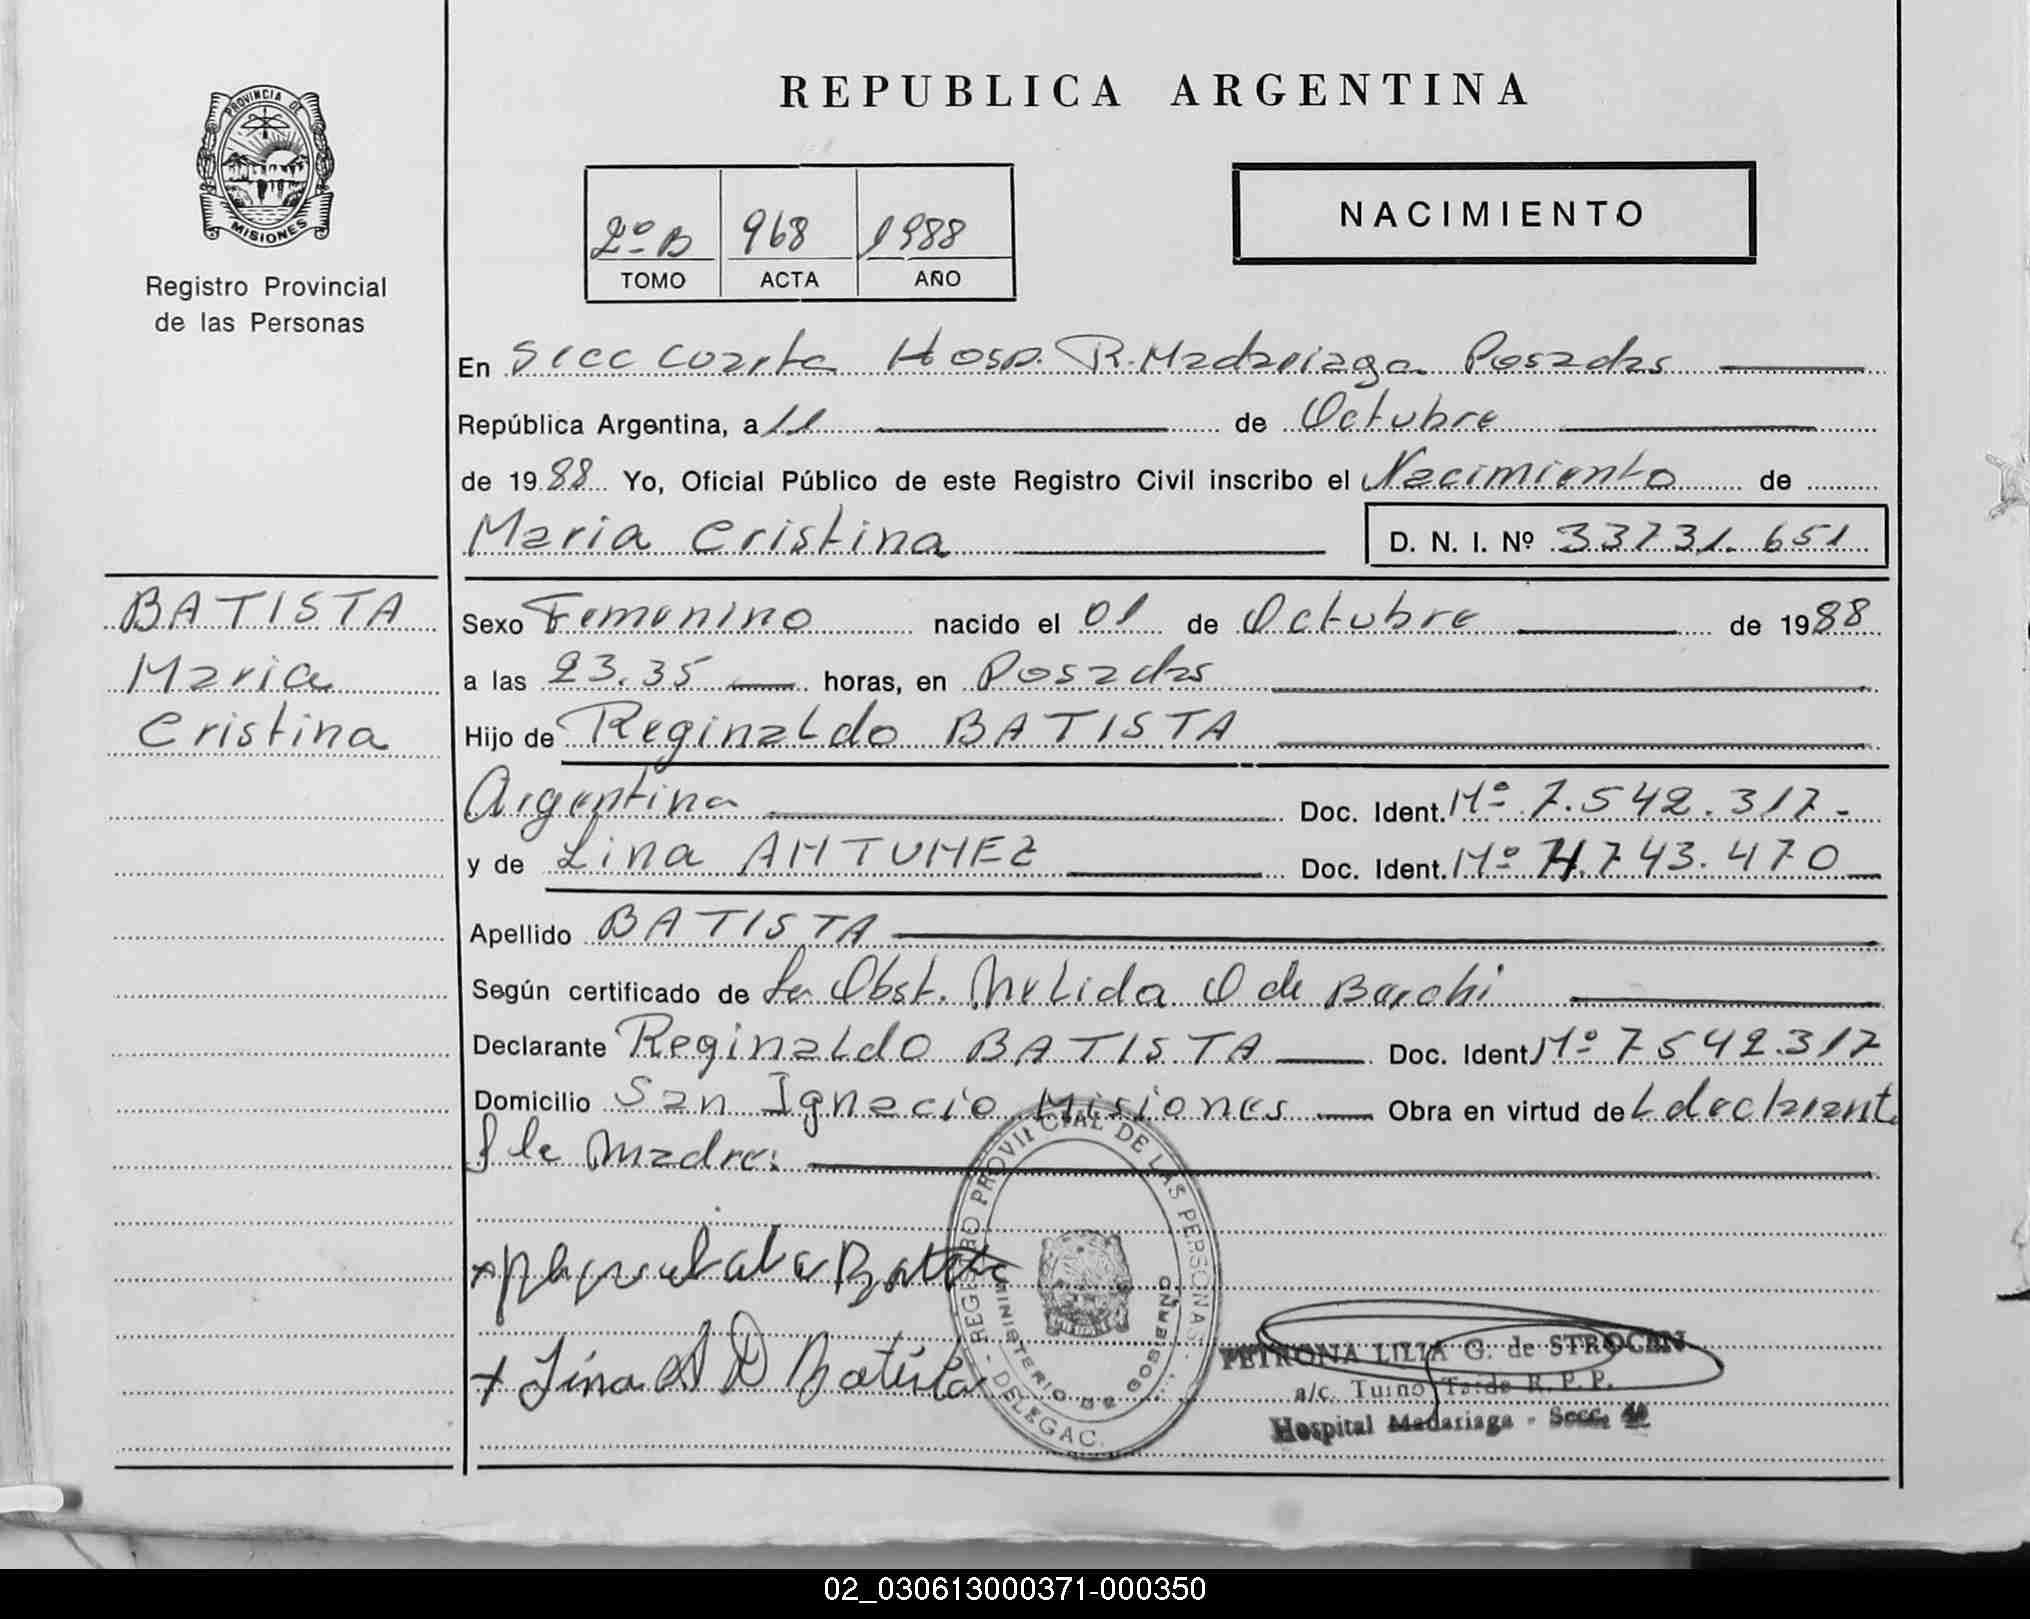 REPUBLICA ARGENTINA
PROVINCIA DE
MISIONES
Registro Provincial
de las Personas
2º B 968 1988
TOMO ACTA AÑO
NACIMIENTO
En Secc Cuarta Hosp. R. Madariaga Posadas
República Argentina, a 11 de Octubre
de 1988 Yo, Oficial Público de este Registro Civil inscribo el Nacimiento de
Maria Cristina D. N. I. Nº 33731.651
BATISTA
Maria
Cristina
Sexo Femenino nacido el 01 de Octubre de 1988
a las 23.35 horas, en Posadas
Hijo de Reginaldo BATISTA
Argentina Doc. Ident. Mº 7.542.317-
y de Lina ANTUNEZ Doc. Ident. Mº 743.470
Apellido BATISTA
Según certificado de La Obst. Nelida O de
Declarante Reginaldo BATISTA Doc. Ident Mº 7542.317
Domicilio San Ignacio Misiones Obra en virtud de
la Madre:
Batista
+ Lina A D Batista
REGISTRO PROVINCIAL DE LAS PERSONAS - DELEGAC.
MINISTERIO DE GOBIERNO
PETRONA LILIA G. de STROCEN
a/c. Turno Tarde R. P. P.
Hospital Madariaga - Secc. 4a
02_030613000371-000350